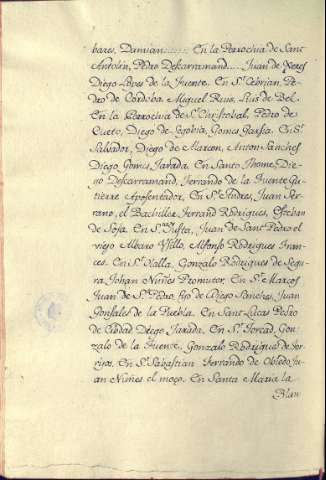 bares, Damian...... En la Parrochia de Sant
Antolin, Pedro Descarramand..... Juan de Xeres
Diego Lopes de la Fuente. En Sⁿ Cebrian, Pe-
dro de Cordoba Miguel Rius, Luis de Bel.
En la Parrochia de Sⁿ Cristobal, Pedro de
Cueto, Diego de Segobia, Gomes Garsia. En Sⁿ
Salvador, Diego de Alarcon, Anton Sanches
Diego Gomes, Jarada. En Santo Thome, Die-
go Descarramand, Ferrando de la Fuente Gu-
tierre Aposentador, En Sⁿ Andres, Juan Ser-
rano, el Bachiller, Ferrand Rodrigues, Esteban
de Sosa. En Sᵗᵃ Justa, Juan de Sant Pedro el
viejo Albaro Villo, Alfonso Rodrigues Fran-
ces. En Sᵗᵃ Olalla, Gonzalo Rodrigues de Segu-
ra, Johan Nuñes Promutor. En Sⁿ Marcos
Juan de Sⁿ Pedro, fijo de Diego Sanches, Juan
Gonsales de la Puebla. En Sant Lucas Pedro
de Ciudad Diego Jarada. En Sⁿ Torcad, Gon-
zalo de la Fuente, Gonzalo Rodrigues de Tor-
rijos. En Sⁿ Sabastian Ferrando de Obledo, Ju-
an Nuñes el moço. En Santa Maria la
Blan